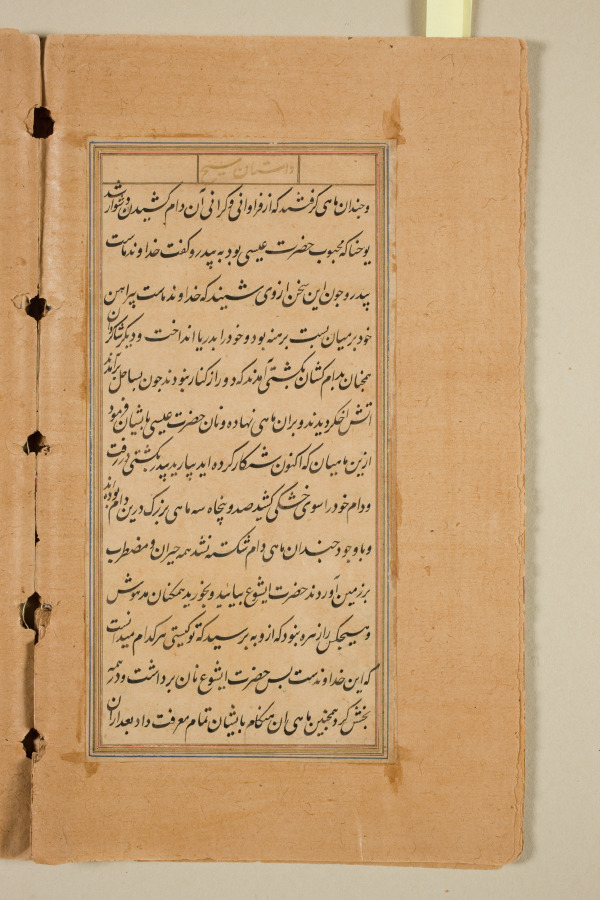 داستان مسیح
و چندان ماهی گرفتند که از فراوانی و کرانی آن دام کشیدن دشوار شد
یوحنا که محبوب حضرت عیسی بود به پیدرو کفت خداوند ماست
پیدرو چون این سخن از وی شنید که خداوند ماست پیراهن
خود بر میان بست برهنه بود و خود را بدریا انداخت و دیکر شاکردان
همچنان بدام کشان بکشتی آمدند که دور از کنار نبود ند چون بساحل برآمدند
اتش اخکر دیدند و بران ماهی نهاده و نان حضرت عیسی بایشان فرمود
ازین ماهیان که اکنون شکار کرده اید بیارید پیدر بکشتی در رفت
و دام خود را سوی خشکی کشید صد و پنجاه سه ماهی بزرک درین دام بودند
و با وجود چندان ماهی دام شکسته نشد همه حیران و مضطرب
بر زمین آوردند حضرت ایشوع بیائید و بخورید همکنان مدهوش
و هیچکس را زهره نبود که از و به پرسید که تو کیستی هر کدام میدانست
که این خداوندست پس حضرت ایشوع نان برداشت و در همه
بخش کرد و همچنین ماهی ان هنکام بایشان تمام معرفت داد بعد ازان